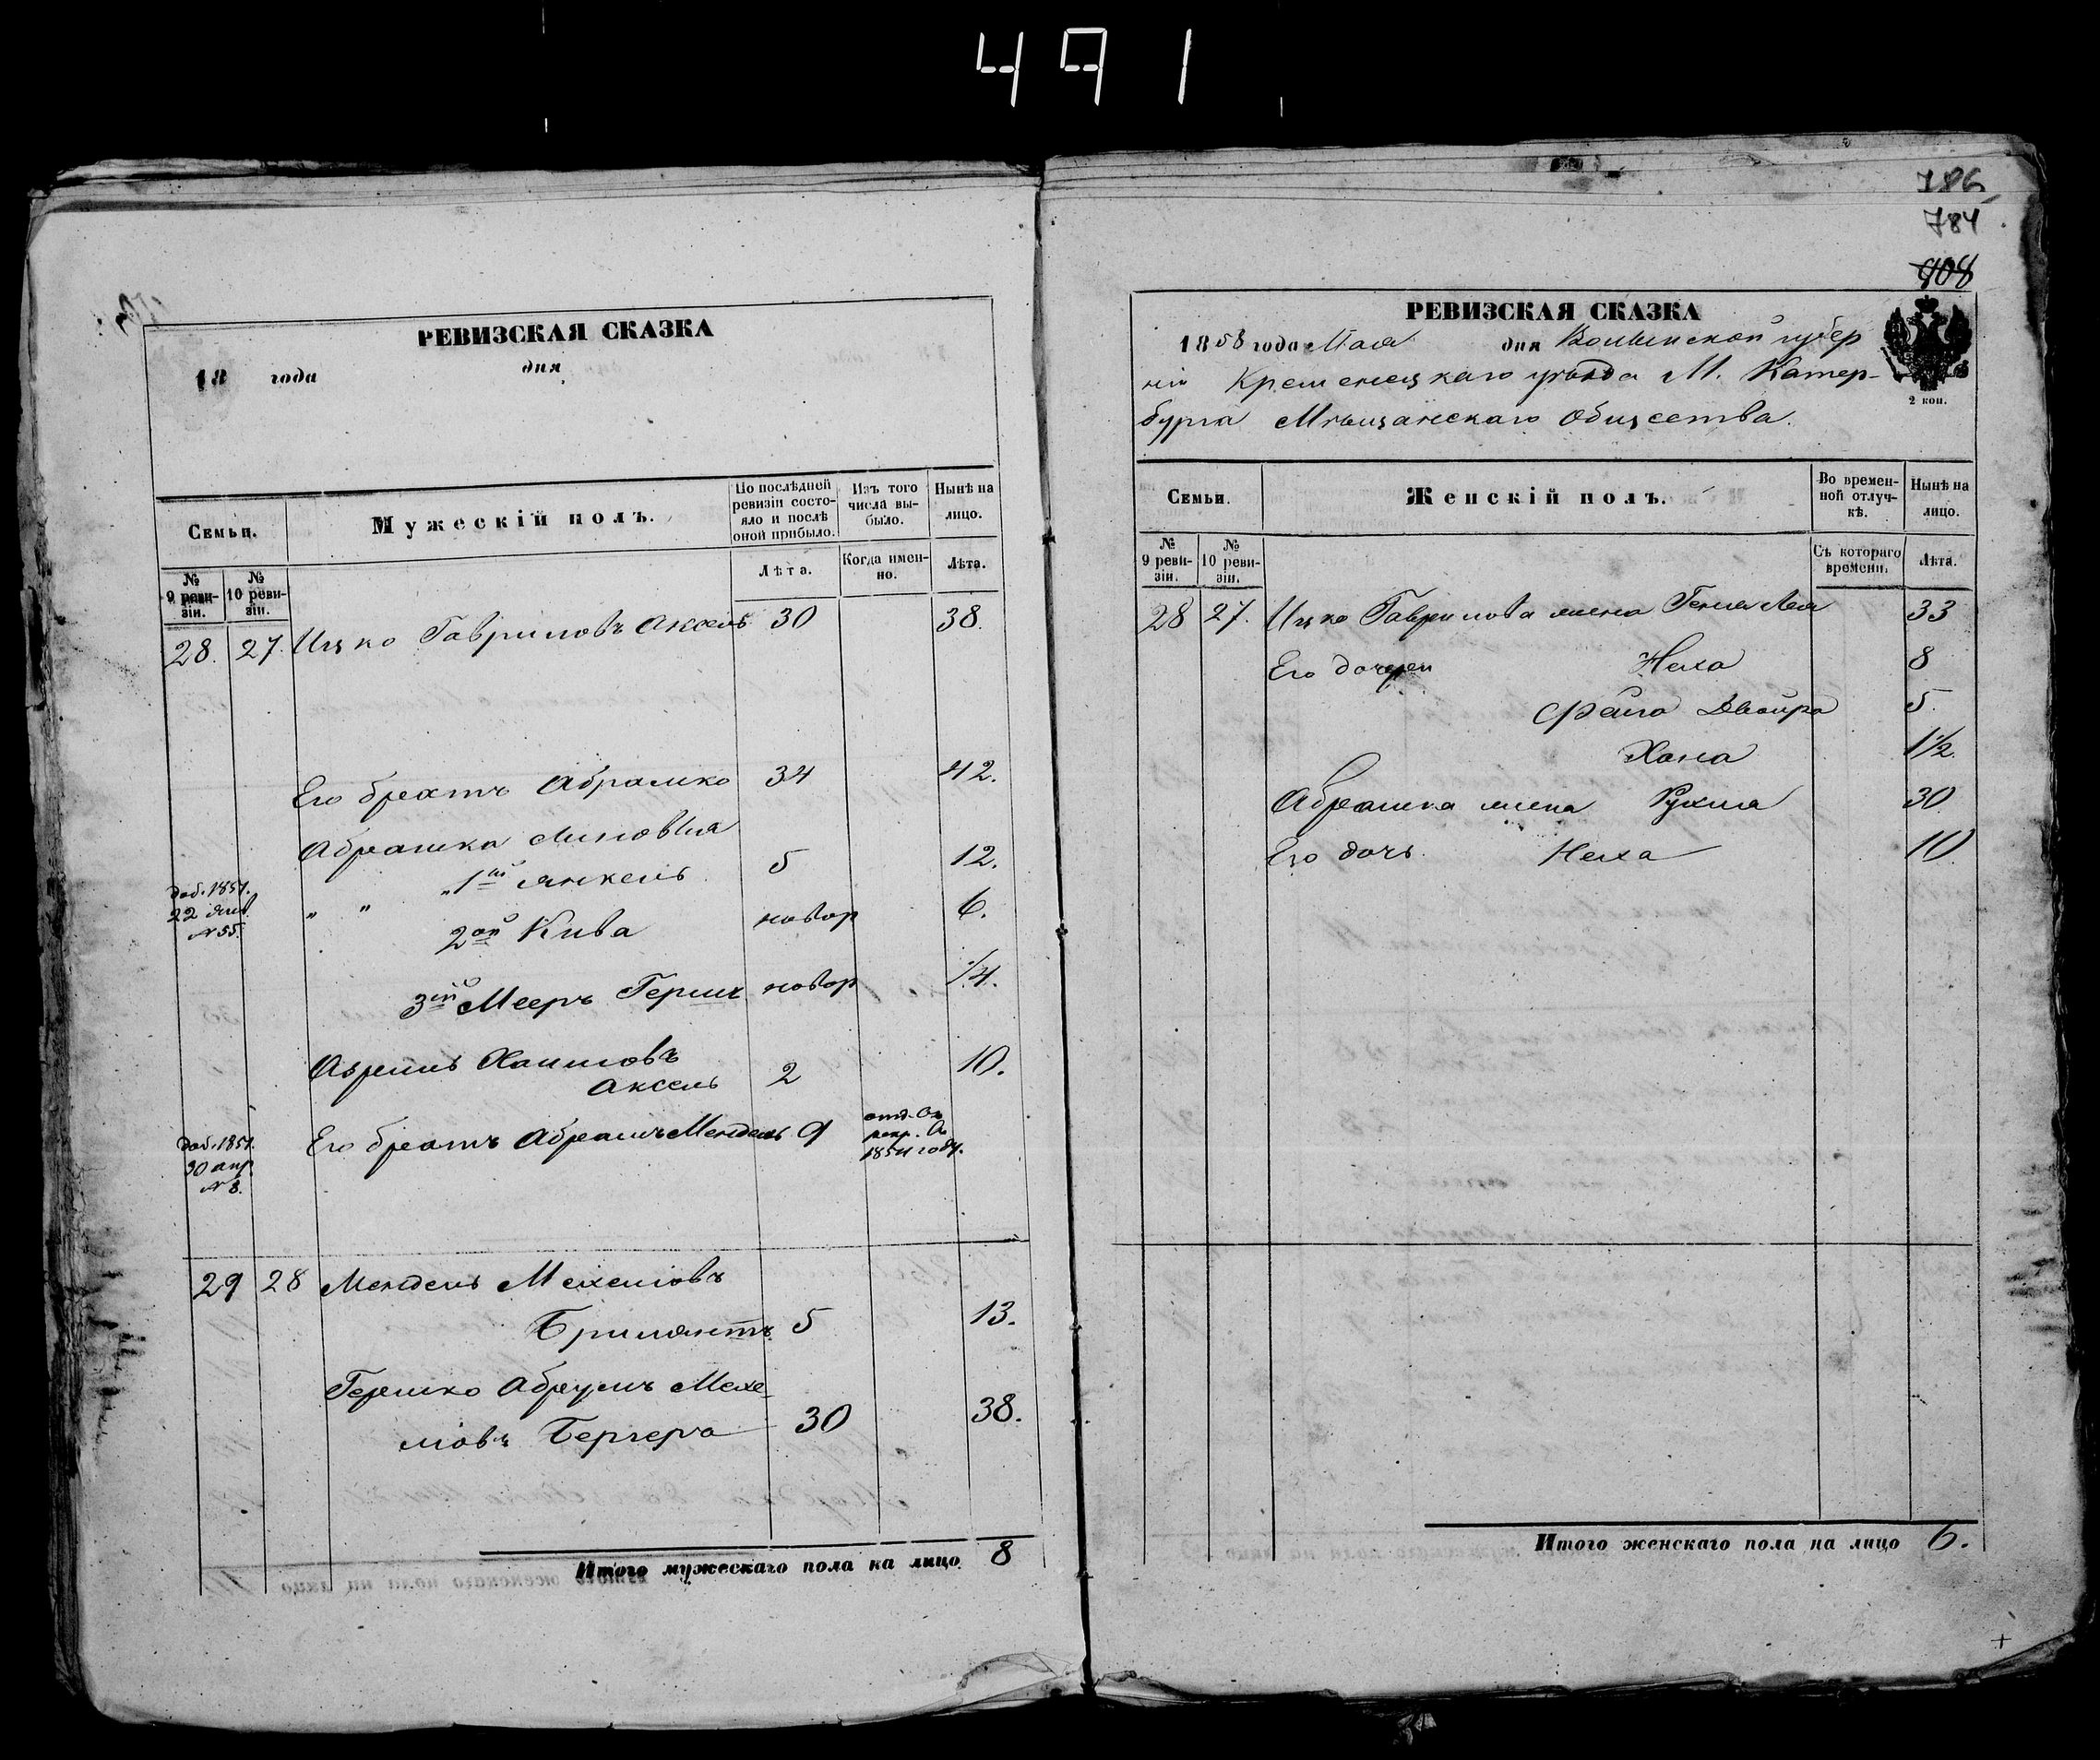 491
РЕВИЗСКАЯ СКАЗКА
18 года дня
Семьи.
Мужескій полъ.
По послѣдней ревизіи состояло и послѣ оной прибыло.
Изъ того числа выбыло.
Нынѣ на лицо.
№ 9 ревизіи.
№ 10 ревизіи.
Лѣта.
Когда именно.
Лѣта.
28. 27. Ицко Гавриловъ Аксель 30 38.
Его братъ Абрамко 34 42.
Абрамка сыновья
" " 1й Янкель 5 12.
доб. 1851. 22 янв. № 55.
2ой Кива новор 6.
3ій Мееръ Герш новор 1/4.
Аврумъ Хаимовъ
Аксель 2 10.
доб. 1851. 30 апр. № 8.
Его братъ Абрамъ Мендель 9 отд. въ рекр. въ 1854 году.
29 28 Мендель Мехелювъ
Брилянтъ 5 13.
Гершко Абрумъ Мехе-
ліовъ Бергеръ 30 38.
Итого мужескаго пола на лицо 8
786
784
908
РЕВИЗСКАЯ СКАЗКА
1858 года Мая дня Волынской губер
ніи Кременецкаго уѣзда М. Катер-
бурга Мѣщанскаго Общества.
2 коп.
Семьи.
Женскій полъ.
Во временной отлучкѣ.
Нынѣ на лицо.
№ 9 ревизіи.
№ 10 ревизіи.
Съ котораго времени.
Лѣта.
28 27. Ицко Гаврилова жена Геня Лея 33
Его дочери Неха 8
Фейга Двойра 5.
Хана 1 1/2.
Абрамка жена Рухля 30
Его дочь Неха 10
Итого женскаго пола на лицо 6.